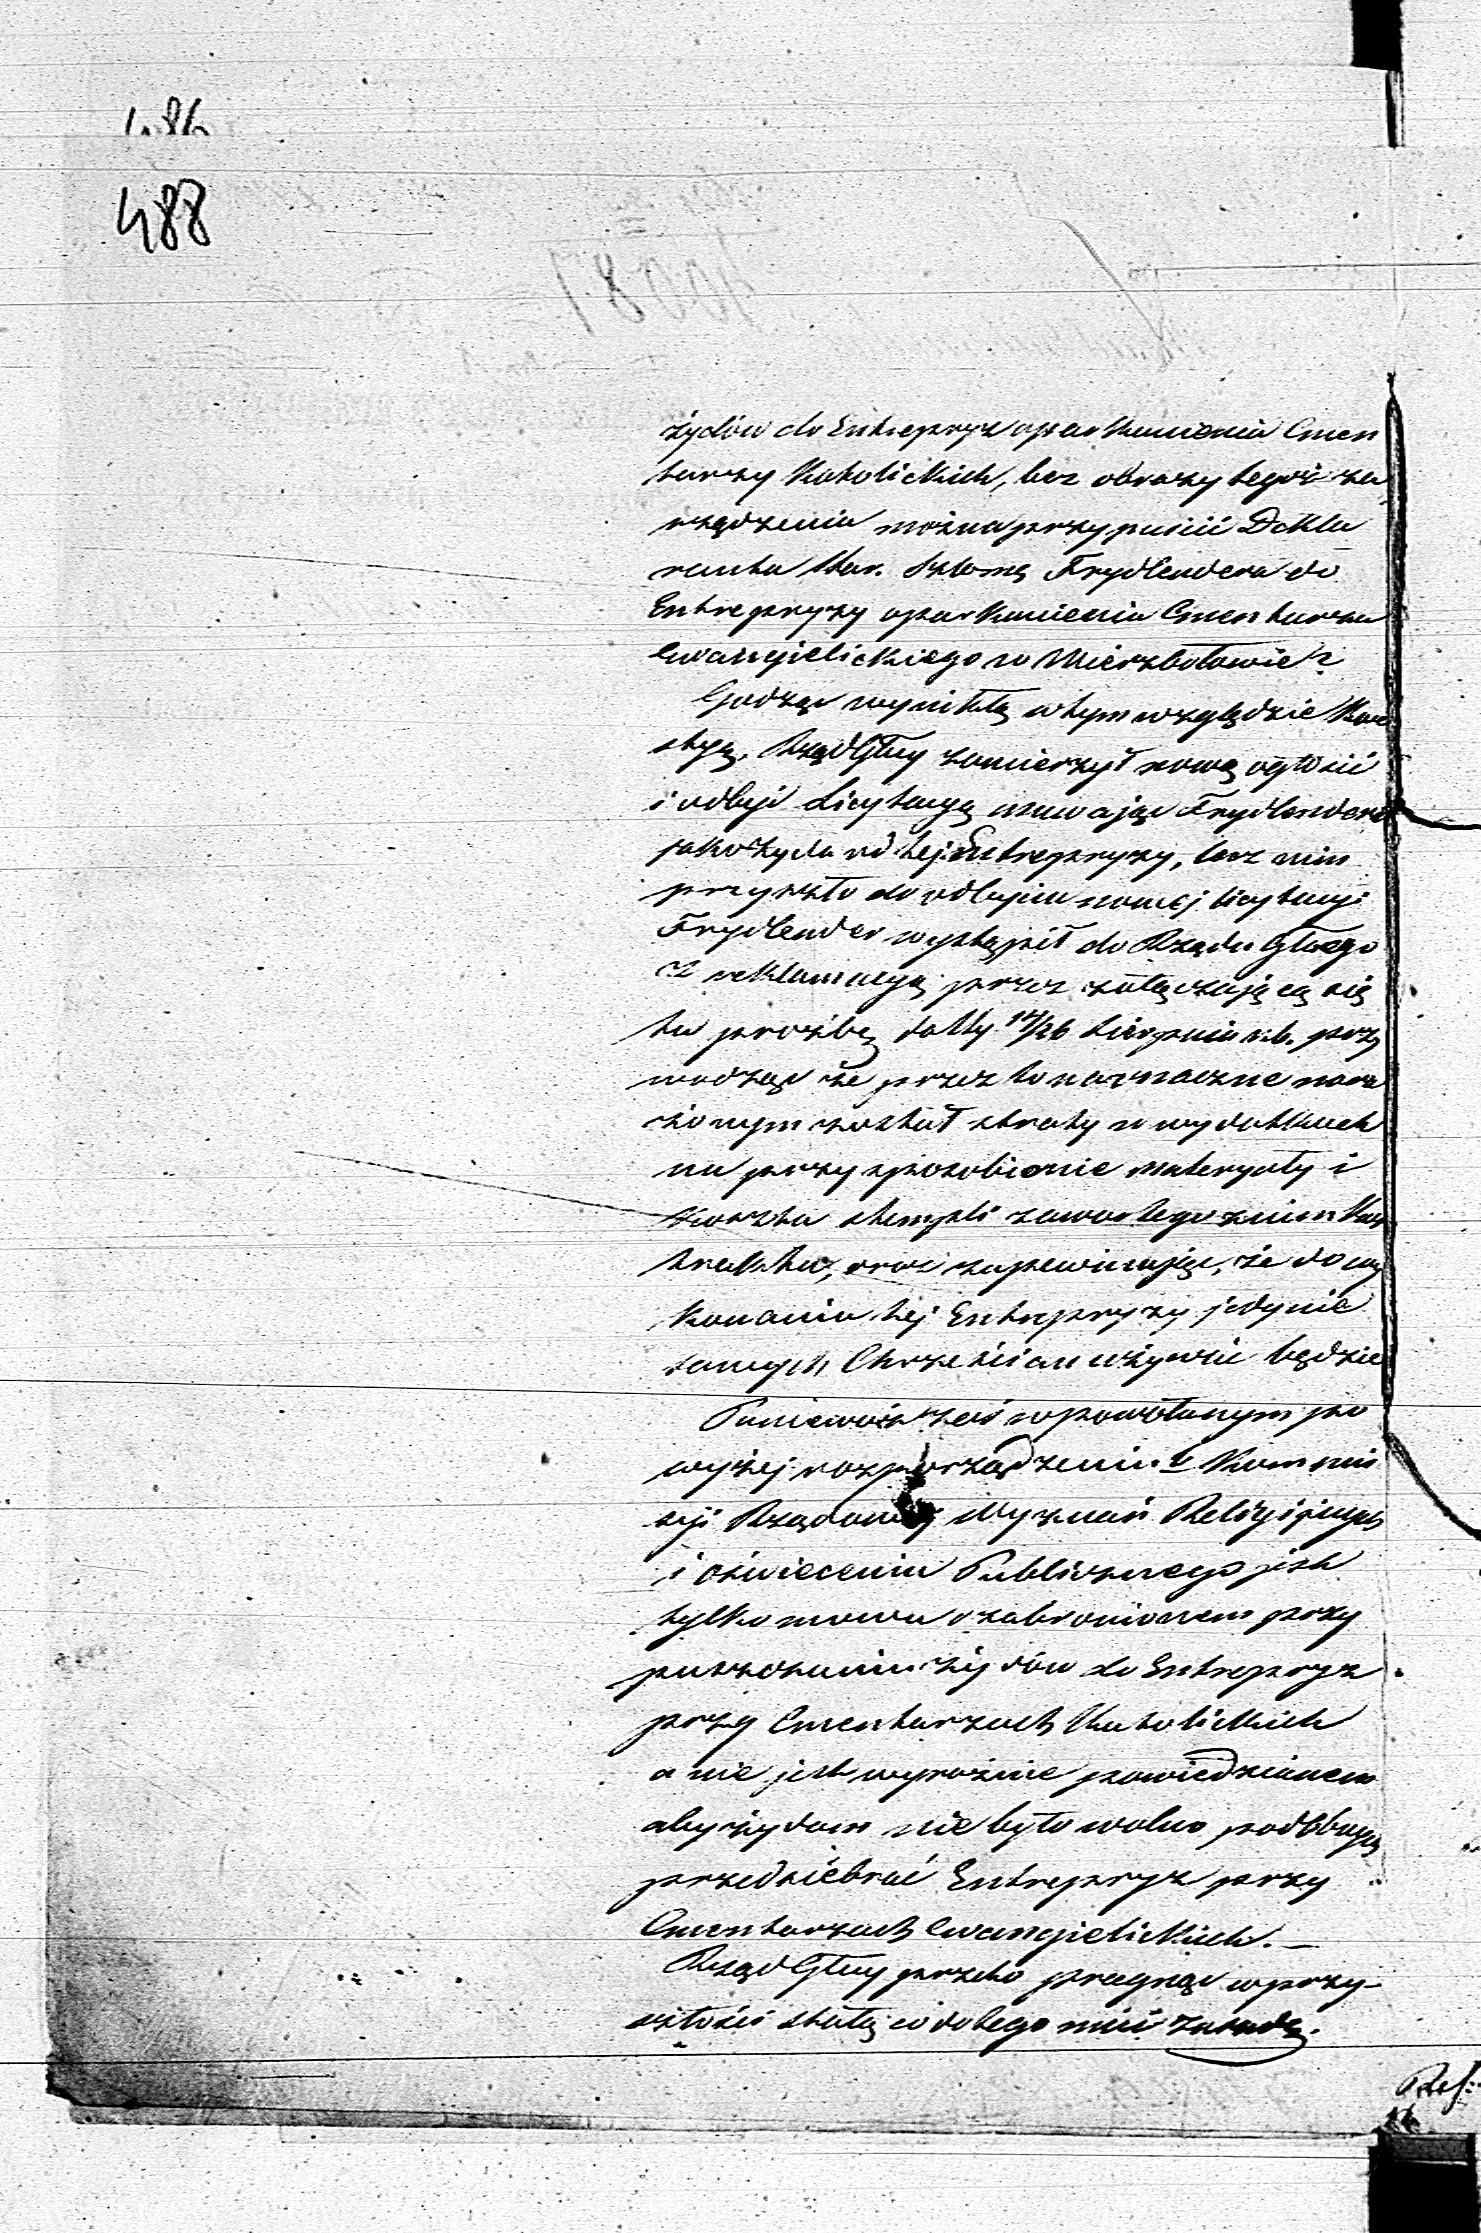 486
488
żydów do Entrepryz oparkanienia Cmen
tarzy Katolickich, bez obrazy tegoż za
rządzenia można przypuścić Dekla
ranta Star. Szlomę Frydlendera do
Entrepryzy oparkanienia Cmentarza
Ewangielickiego w Wierzbołowie?
Godząc wynikłą w tym względzie Kwe
styą, Rząd Głny zamierzył nową ogłosić
i odbyć Licytacyą usuwając Frydlendera
jako żyda od tej Entrepryzy, lecz nim
przyszło do odbycia nowej licytacyi
Frydlender wystąpił do Rządu Głnego
z reklamacyą przez załączającą się
tu prośbę datty 14/26 Sierpnia r.b. przy
wodząc że przez to na znaczne nara
żonym został straty w wydatkach
na przysposobienie materyały i
koszta stempli zawartego z nim Kon
traktu, oraz zapewniając, że do wy
konania tej Entrepryzy jedynie
samych Chrześcian używać będzie
Ponieważ zaś w powołanym po
wyżej rozporządzeniu Kommis
syi Rządowej Wyznań Religijnych
i Oświecenia Publicznego jest
tylko mowa o zabronionem przy
puszczaniu żydów do Entrepryz
przy Cmentarzach Katolickich
a nie jest wyraźnie powiedzianem
aby żydom nie było wolno
przedsiębrać Entrepryz przy
Cmentarzach Ewangielickich. –
Rząd Głny przeto pragnąc w przy-
szłości stałą co do tego mieć zasadę.